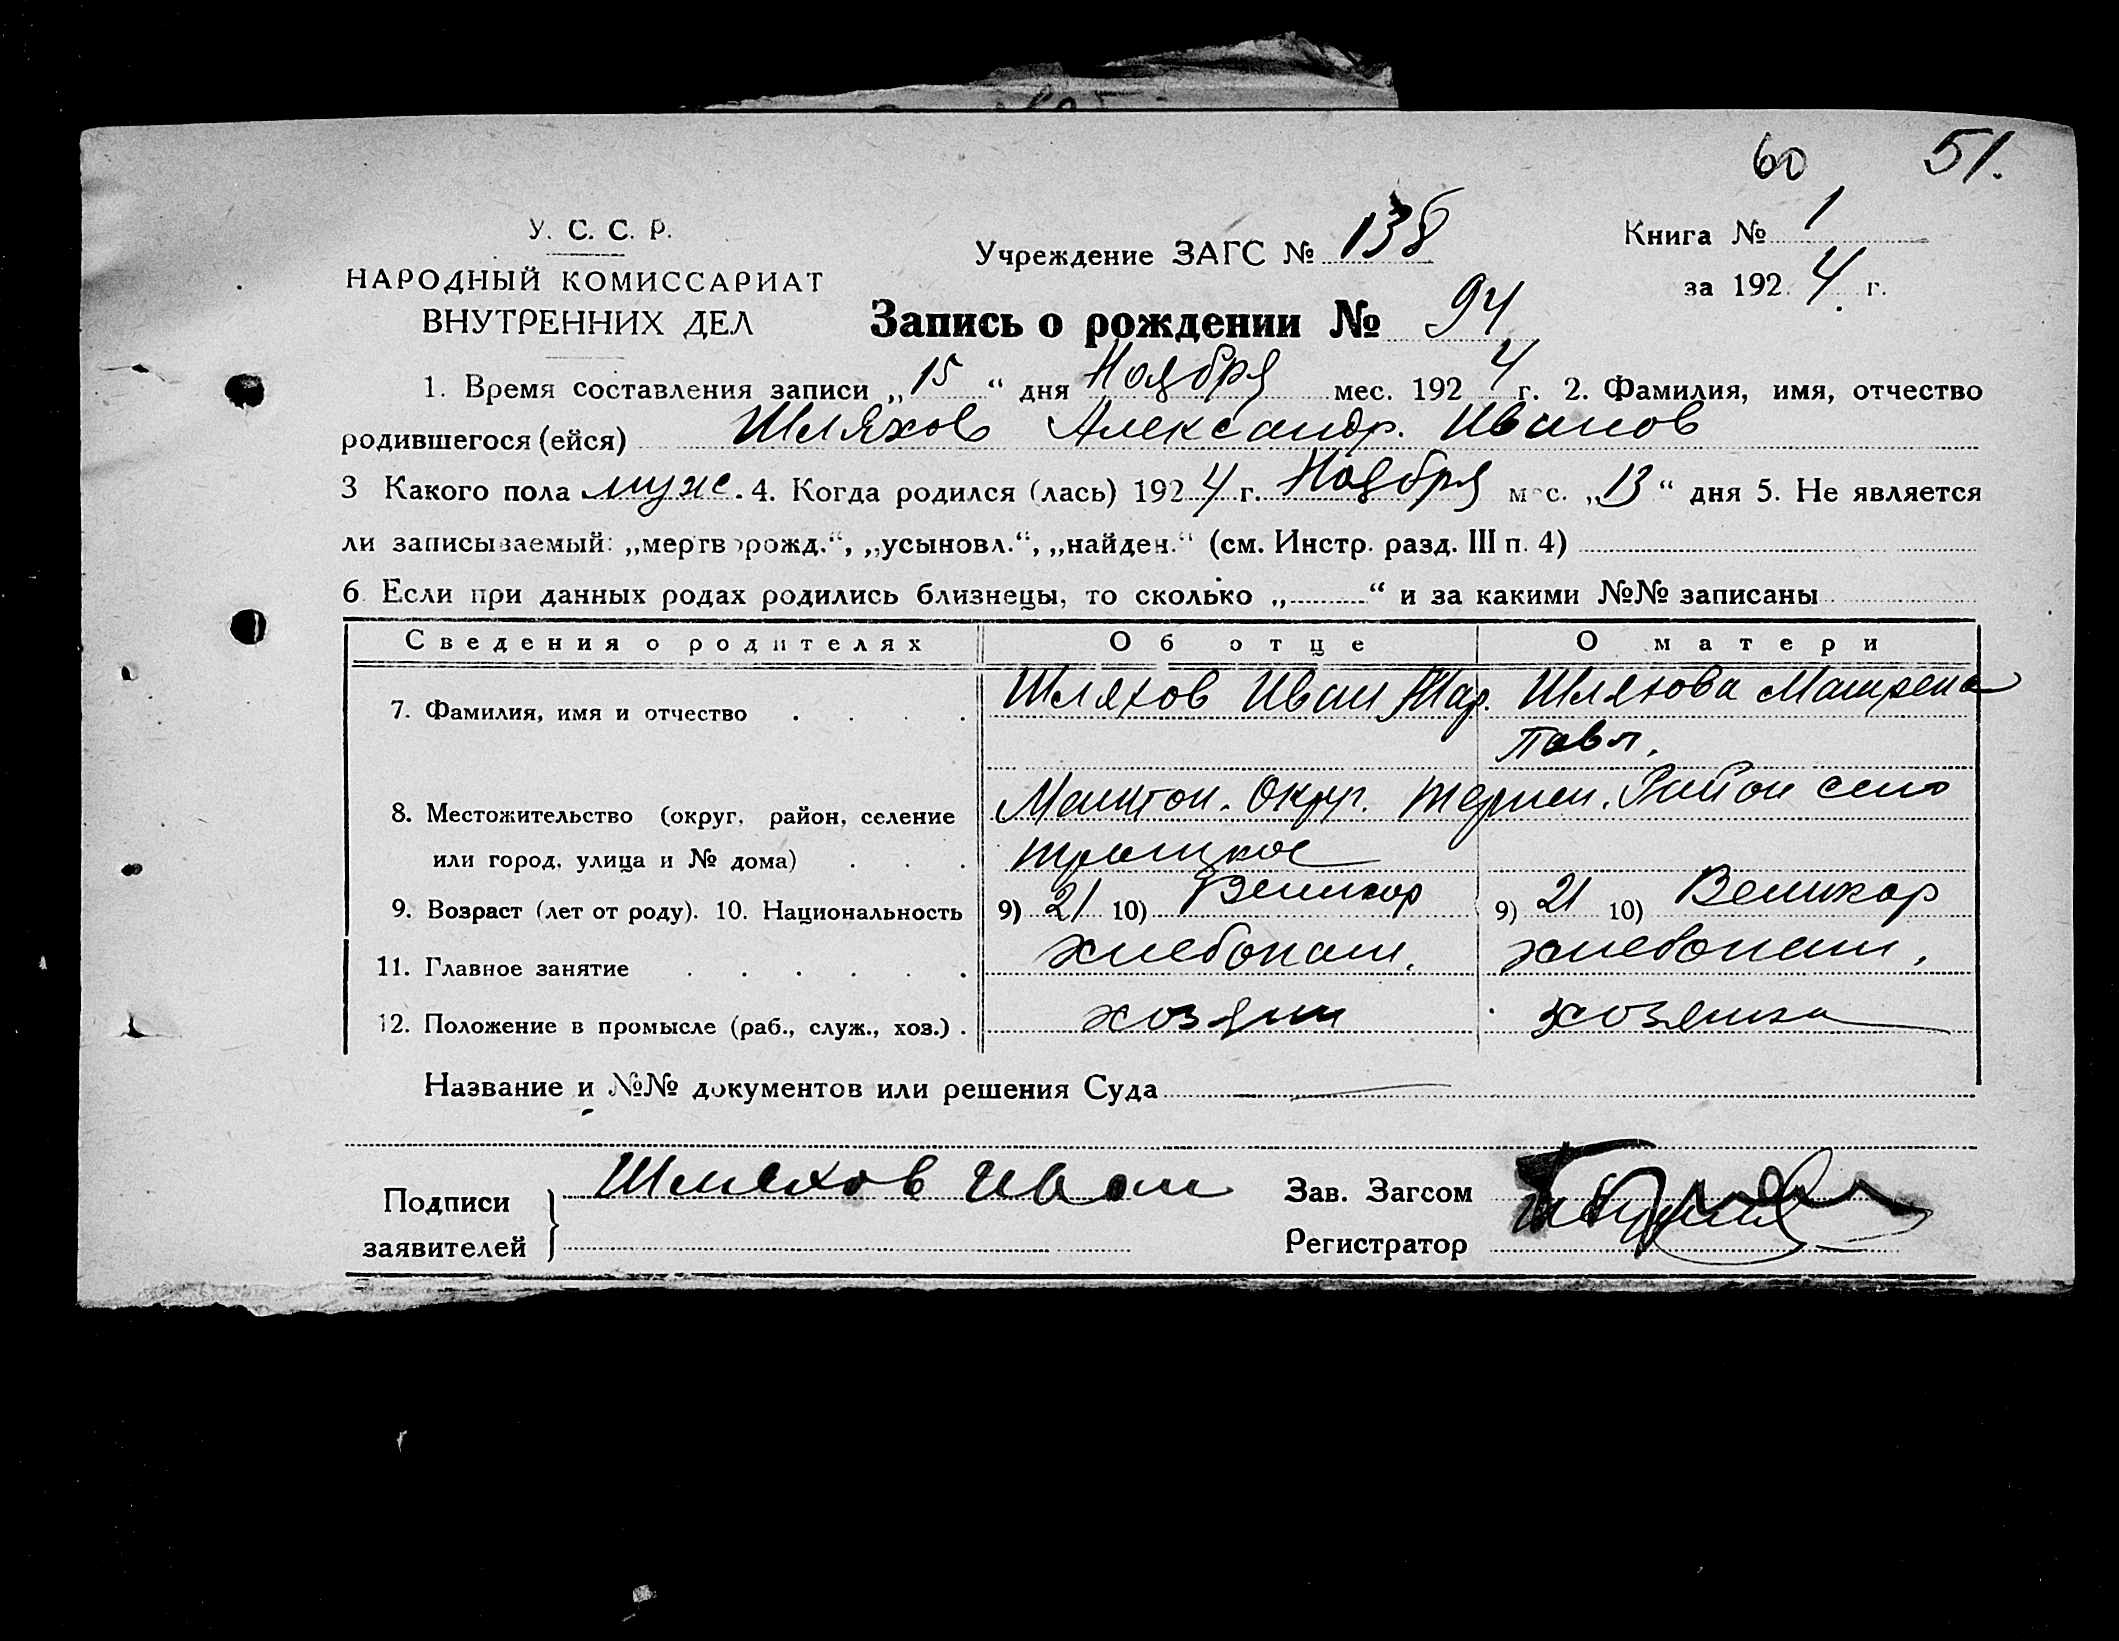 60 51.
У. С. С. Р.
НАРОДНЫЙ КОМИССАРИАТ
ВНУТРЕННИХ ДЕЛ
Учреждение ЗАГС № 138
Книга № 1
за 1924 г.
Запись о рождении № 94
1. Время составления записи „15“ дня Ноября мес. 1924 г. 2. Фамилия, имя, отчество
родившегося (ейся) Шляхов Александр. Иванов
3 Какого пола муж. 4. Когда родился (лась) 1924 г. Ноября мес. „13“ дня 5. Не является
ли записываемый: „мертворожд.“, „усыновл.“, „найден.“ (см. Инстр. разд. III п. 4)
6. Если при данных родах родились близнецы, то сколько „ “ и за какими №№ записаны
Сведения о родителях Об отце О матери
7. Фамилия, имя и отчество Шляхов Иван Шляхова Матрена
Павл.
8. Местожительство (округ, район, селение Округ. Район село
или город, улица и № дома) Троицкое
9. Возраст (лет от роду). 10. Национальность 9) 21 10) Великор 9) 21 10) Великор
11. Главное занятие хлебопаш. хлебопаш.
12. Положение в промысле (раб., служ., хоз.) хозяин хозяйка
Название и №№ документов или решения Суда
Подписи Шляхов Иван Зав. Загсом
заявителей Регистратор